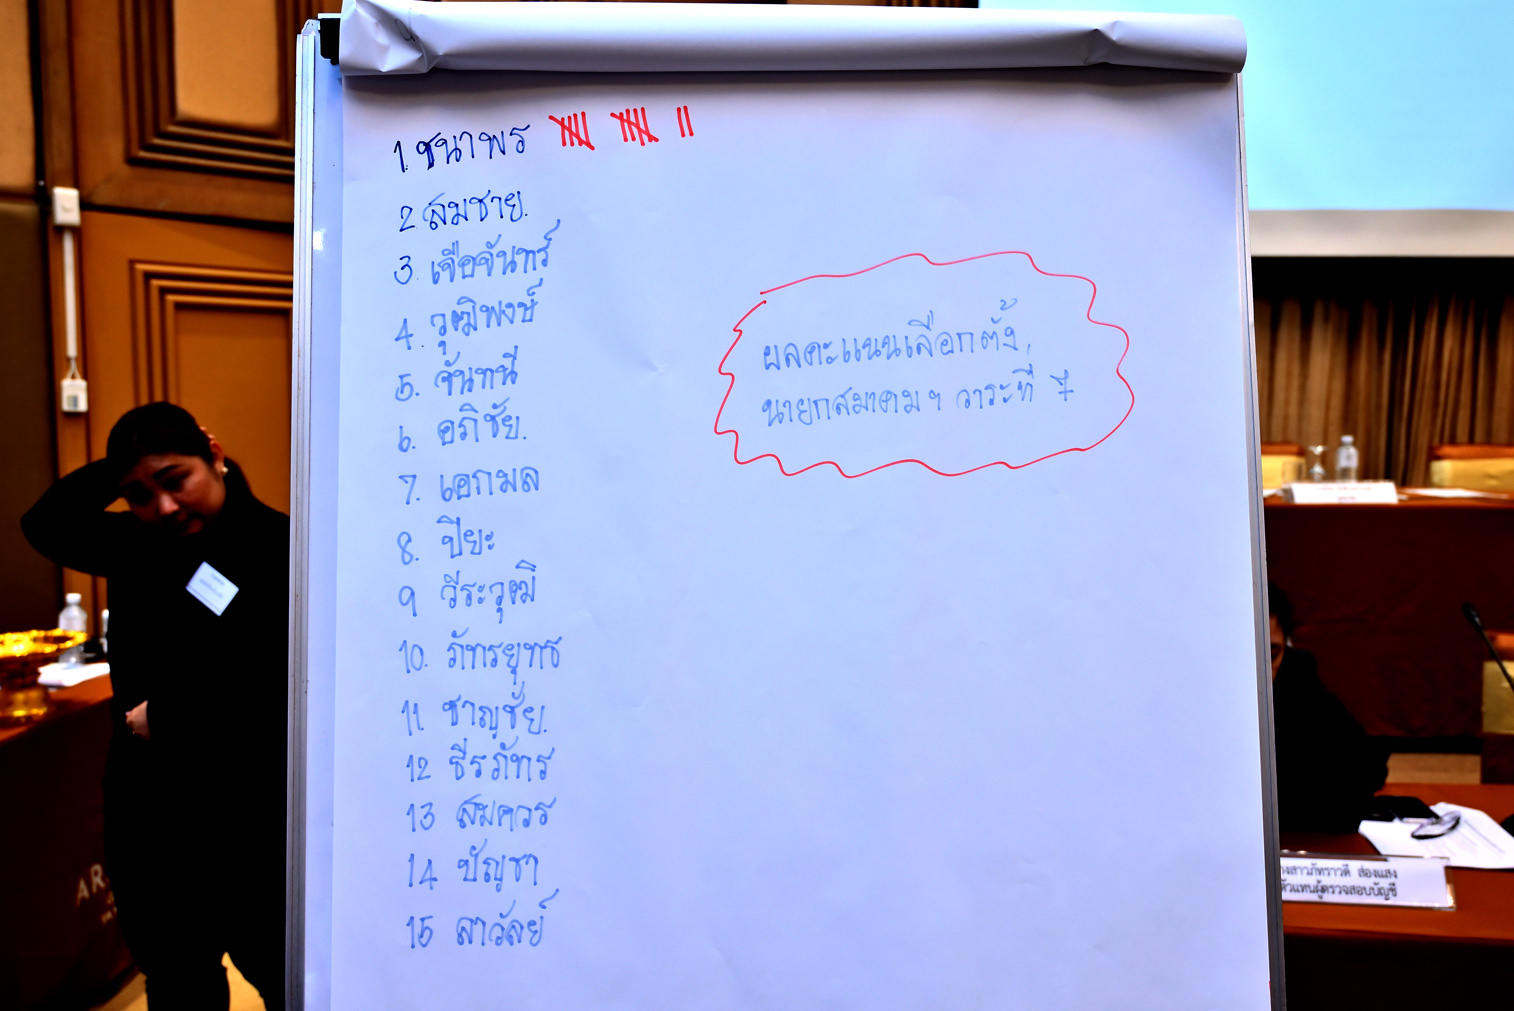 1. ชนาพร
2. สมชาย.
3. เจือจันทร์
4. วุฒิพงษ์
5. จันทนี
6. อภิชัย.
7. เอกมล
8. ปิยะ
9 วีระวุฒิ
10. ภัทรยุทธ
11 ชาญชัย.
12 ธีรภัทร
13 สมควร
14 บัญชา
15 ลาวัลย์
ผลคะแนนเลือกตั้ง
นายกสมาคมฯ วาระที่ 7
างสาวภัทราวดี ส่องแสง
ตัวแทนผู้ตรวจสอบบัญชี
AR